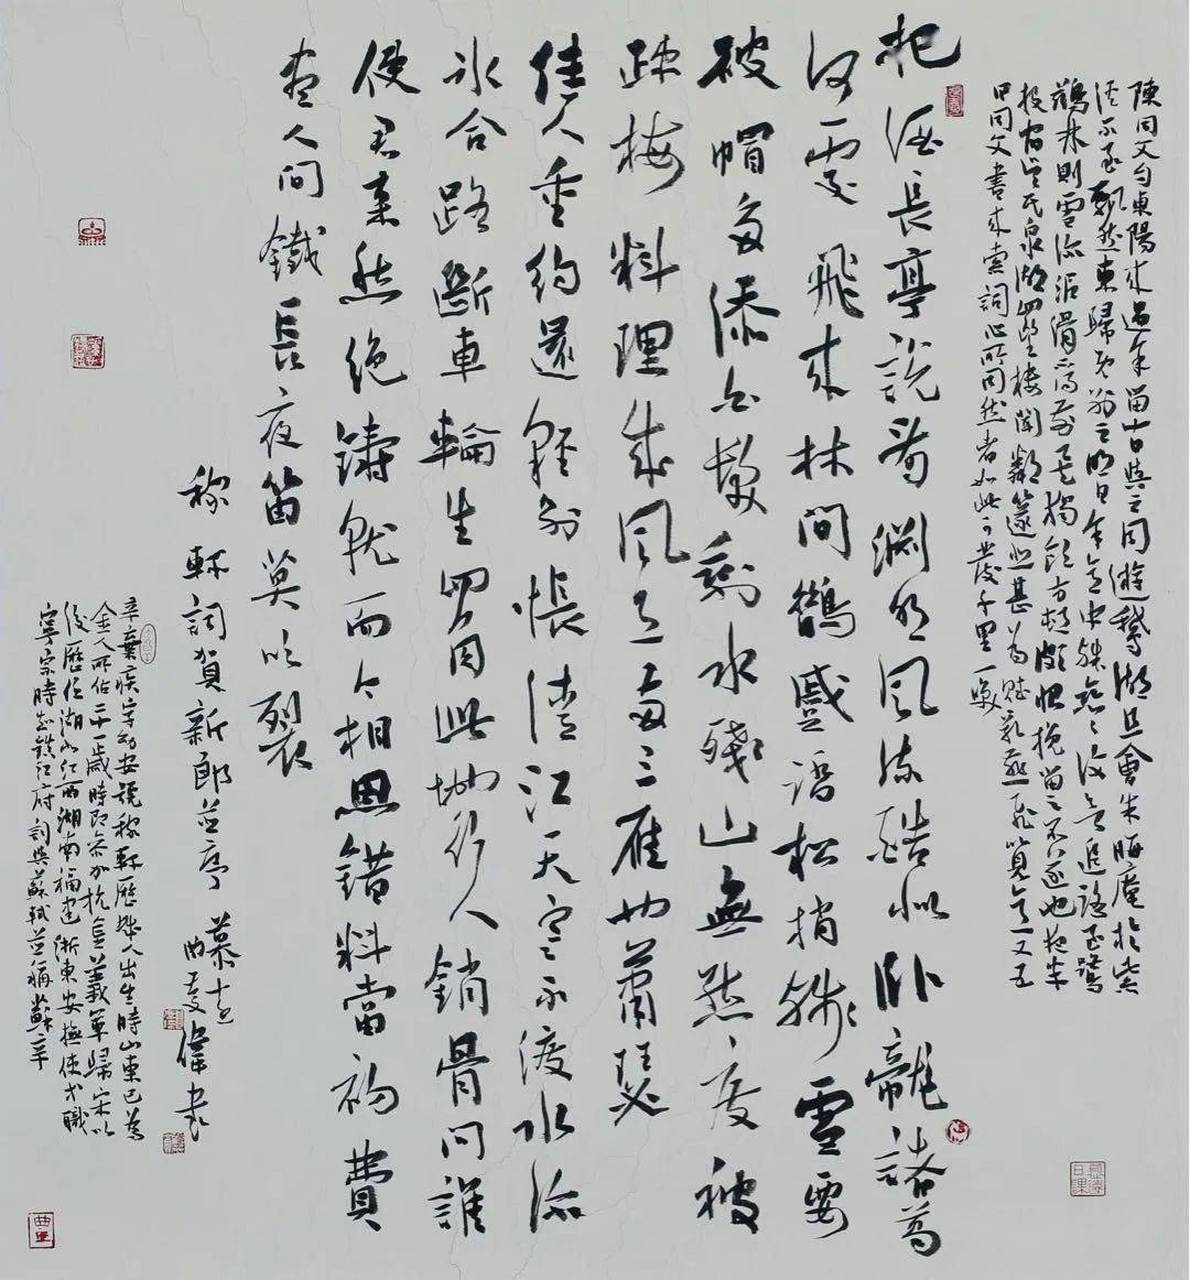 陳同父自東陽來過余留十日與之同遊鵝湖且會朱晦庵於紫
溪不至飄然東歸既別之明日余意中殊戀戀復欲追路至鷺
鶿林則雪深泥滑不得前矣獨飲方村頗恨挽留之不遂也夜半
投宿吳氏泉湖四望樓聞鄰篴悲甚為賦乳燕飛以見意又五
日同父書來索詞心所同然者如此可發千里一笑
把酒長亭說看淵明風流酷似臥龍諸葛
何處飛來林間鵲蹙踏松梢殘雪要
破帽多添白髮剩水殘山無態度被
疎梅料理成風月兩三雁也蕭瑟
佳人重約還輕別悵清江天寒不渡水深
冰合路斷車輪生四角此地行人銷骨問誰
使君來愁絕鑄就而今相思錯料當初費
盡人間鐵長夜笛莫吹裂
稼軒詞賀新郎並序 慕遠
曲慶偉書
辛棄疾字幼安號稼軒歷城人出生時山東已為
金人所佔二十一歲時即參加抗金義軍歸宋以
後歷任湖北江西湖南福建浙東安撫使等職
寧宗時知鎮江府詞與蘇軾並稱蘇辛